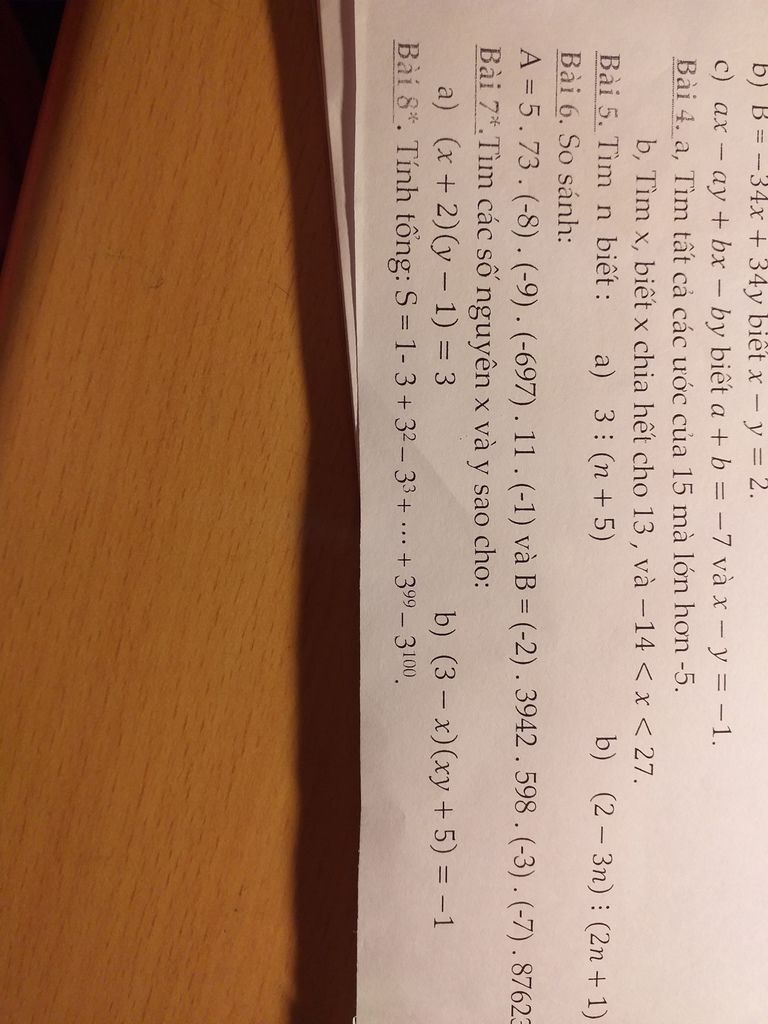 b) B = −34x + 34y biết x − y = 2.
c) ax − ay + bx − by biết a + b = −7 và x − y = −1.
Bài 4. a, Tìm tất cả các ước của 15 mà lớn hơn -5.
b, Tìm x, biết x chia hết cho 13 , và −14 < x < 27.
Bài 5. Tìm n biết : a) 3 ⋮ (n + 5) b) (2 − 3n) ⋮ (2n + 1)
Bài 6. So sánh:
A = 5 . 73 . (-8) . (-9) . (-697) . 11 . (-1) và B = (-2) . 3942 . 598 . (-3) . (-7) . 87623
Bài 7*.Tìm các số nguyên x và y sao cho:
a) (x + 2)(y − 1) = 3 b) (3 − x)(xy + 5) = −1
Bài 8*. Tính tổng: S = 1- 3 + 3² − 3³ + ... + 3⁹⁹ − 3¹⁰⁰.